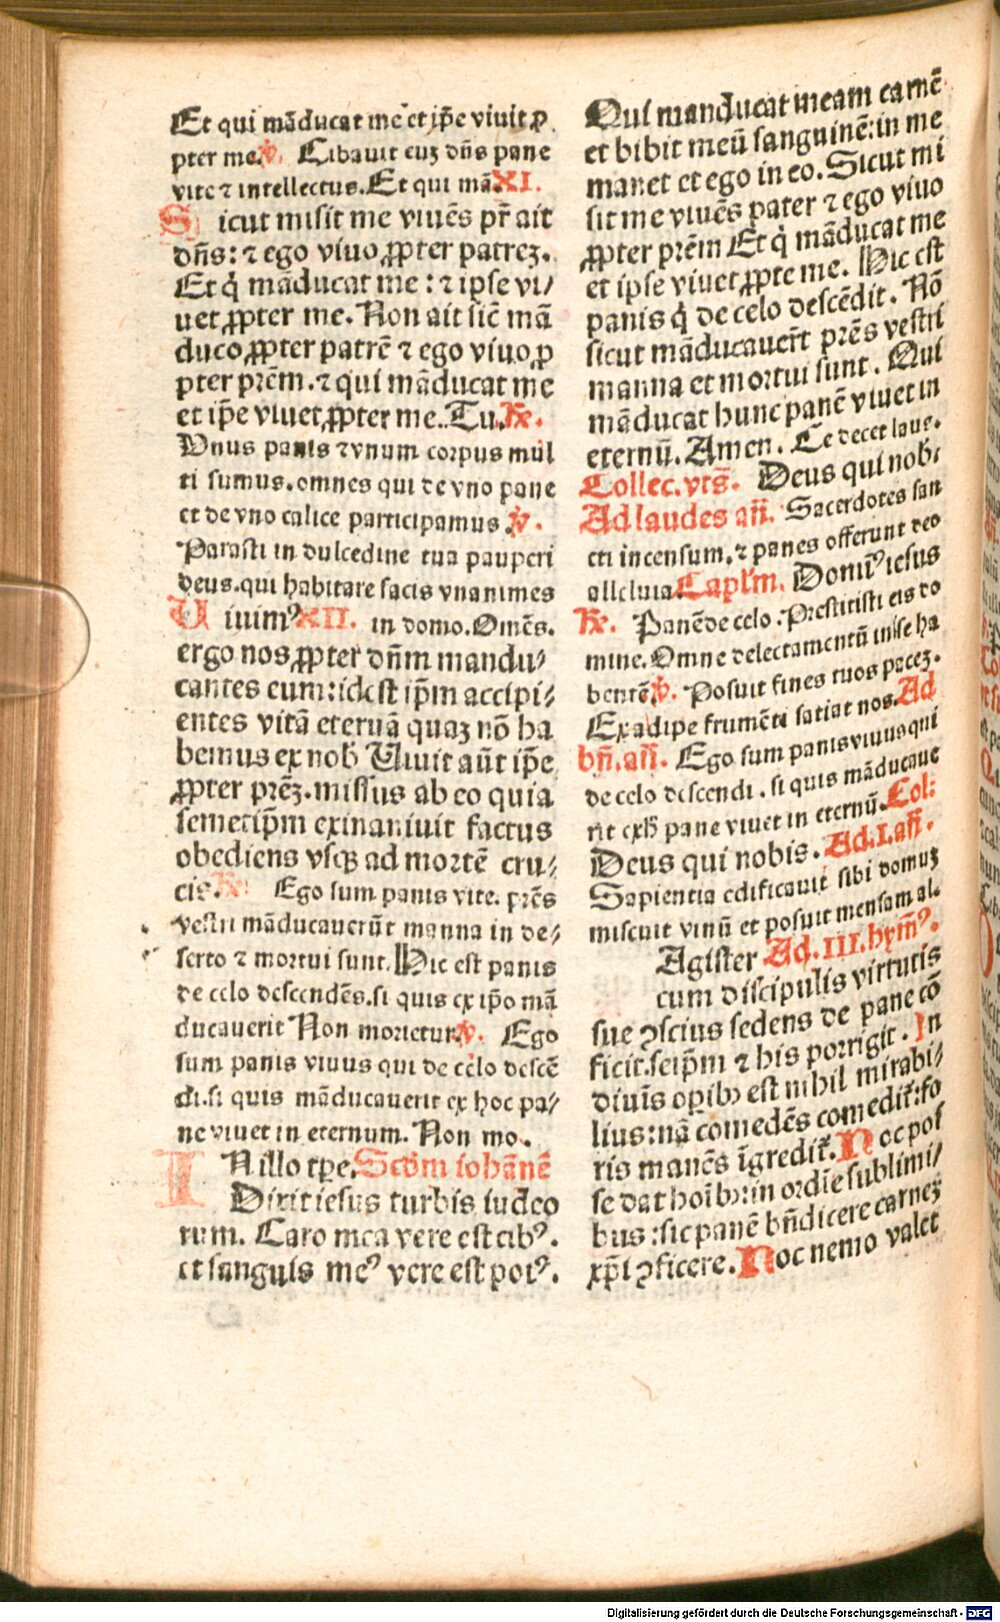 Et qui mãducat me et ip̄e viuit ꝓ
pter me. ℣. Cibauit euʒ dn̄s pane
vite ⁊ intellectus. Et qui mã. XI.
Sicut misit me viuẽs pr̄ ait
dn̄s: ⁊ ego viuo ꝓpter patreʒ.
Et q̇ mãducat me: ⁊ ipse vi/
uet ꝓpter me. Non ait sic̄ mã
duco ꝓpter patrẽ ⁊ ego viuo ꝓ
pter prẽm. ⁊ qui mãducat me
et ip̄e viuet ꝓpter me. Tu. R̄e.
Vnus panis ⁊ vnum corpus mul
ti sumus. omnes qui de vno pane
et de vno calice participamus ℣.
Parasti in dulcedine tua pauperi
deus. qui habitare facis vnanimes
Uiuimꝰ XII. in domo. Omẽs.
ergo nos ꝓpter dn̄m mandu/
cantes eum: idest ip̄m accipi/
entes vitã eternã quaʒ nõ ha
bemus ex nob̄ Uiuit aūt ip̄e
ꝓpter prẽʒ. missus ab eo quia
semetip̄m exinaniuit factus
obediens vsqꝫ ad mortẽ cru/
cis. R̄e. Ego sum panis vite. prẽs
vestri mãducauerūt manna in de/
serto ⁊ mortui sunt. Hic est panis
de celo descendẽs. si quis ex ip̄o mã
ducauerit Non morietur. ℣. Ego
sum panis viuus qui de celo descẽ
di. si quis mãducauerit ex hoc pa/
ne viuet in eternum. Non mo.
IN illo tp̄e. Scd̄m iohãnẽ
Dixit iesus turbis iudeo
rum. Caro mea vere est cibꝰ.
et sanguis meꝰ vere est potꝰ.
Qui manducat meam carnẽ
et bibit meū sanguinẽ: in me
manet et ego in eo. Sicut mi
sit me viuẽs pater ⁊ ego viuo
ꝓpter prẽm Et q̇ mãducat me
et ipse viuet ꝓpte me. Hic est
panis q̇ de celo descẽdit. Nõ
sicut mãducauer̄t prẽs vestri
manna et mortui sunt. Qui
mãducat hunc panẽ viuet in
eternū. Amen. Te decet laus.
Collec. vts̄. Deus qui nob̄:
Ad laudes an̄. Sacerdotes san
cti incensum. ⁊ panes offerunt deo
alleluia. Capl̄m. Domiꝰ iesus
R̄e. Panẽ de celo. Prestitisti eis do
mine. Omne delectamentū in se ha
bentẽ. ℣. Posuit fines tuos paceʒ.
Ex adipe frumẽti satiat nos. Ad
bn̄. an̄. Ego sum panis viuus qui
de celo descendi. si quis mãducaue
rit ex h̄ pane viuet in eternū. Col:
Deus qui nobis. Ad. I. an̄.
Sapientia edificauit sibi domuʒ
miscuit vinū et posuit mensam al.
Agister Ad. III. hym̄ꝰ.
cum discipulis virtutis
sue ꝯscius sedens de pane cõ
ficit. seip̄m ⁊ his porrigit. In
diuīs opibꝫ est nihil mirabi/
lius: nã comedẽs comedit̄: fo
ris manẽs īgredit̄. Hoc pos
se dat hoībꝫ: in ordīe sublimi/
bus: sic panẽ bn̄dicere carneʒ
xp̄i ꝯficere. Hoc nemo valet
Digitalisierung gefördert durch die Deutsche Forschungsgemeinschaft - DFG